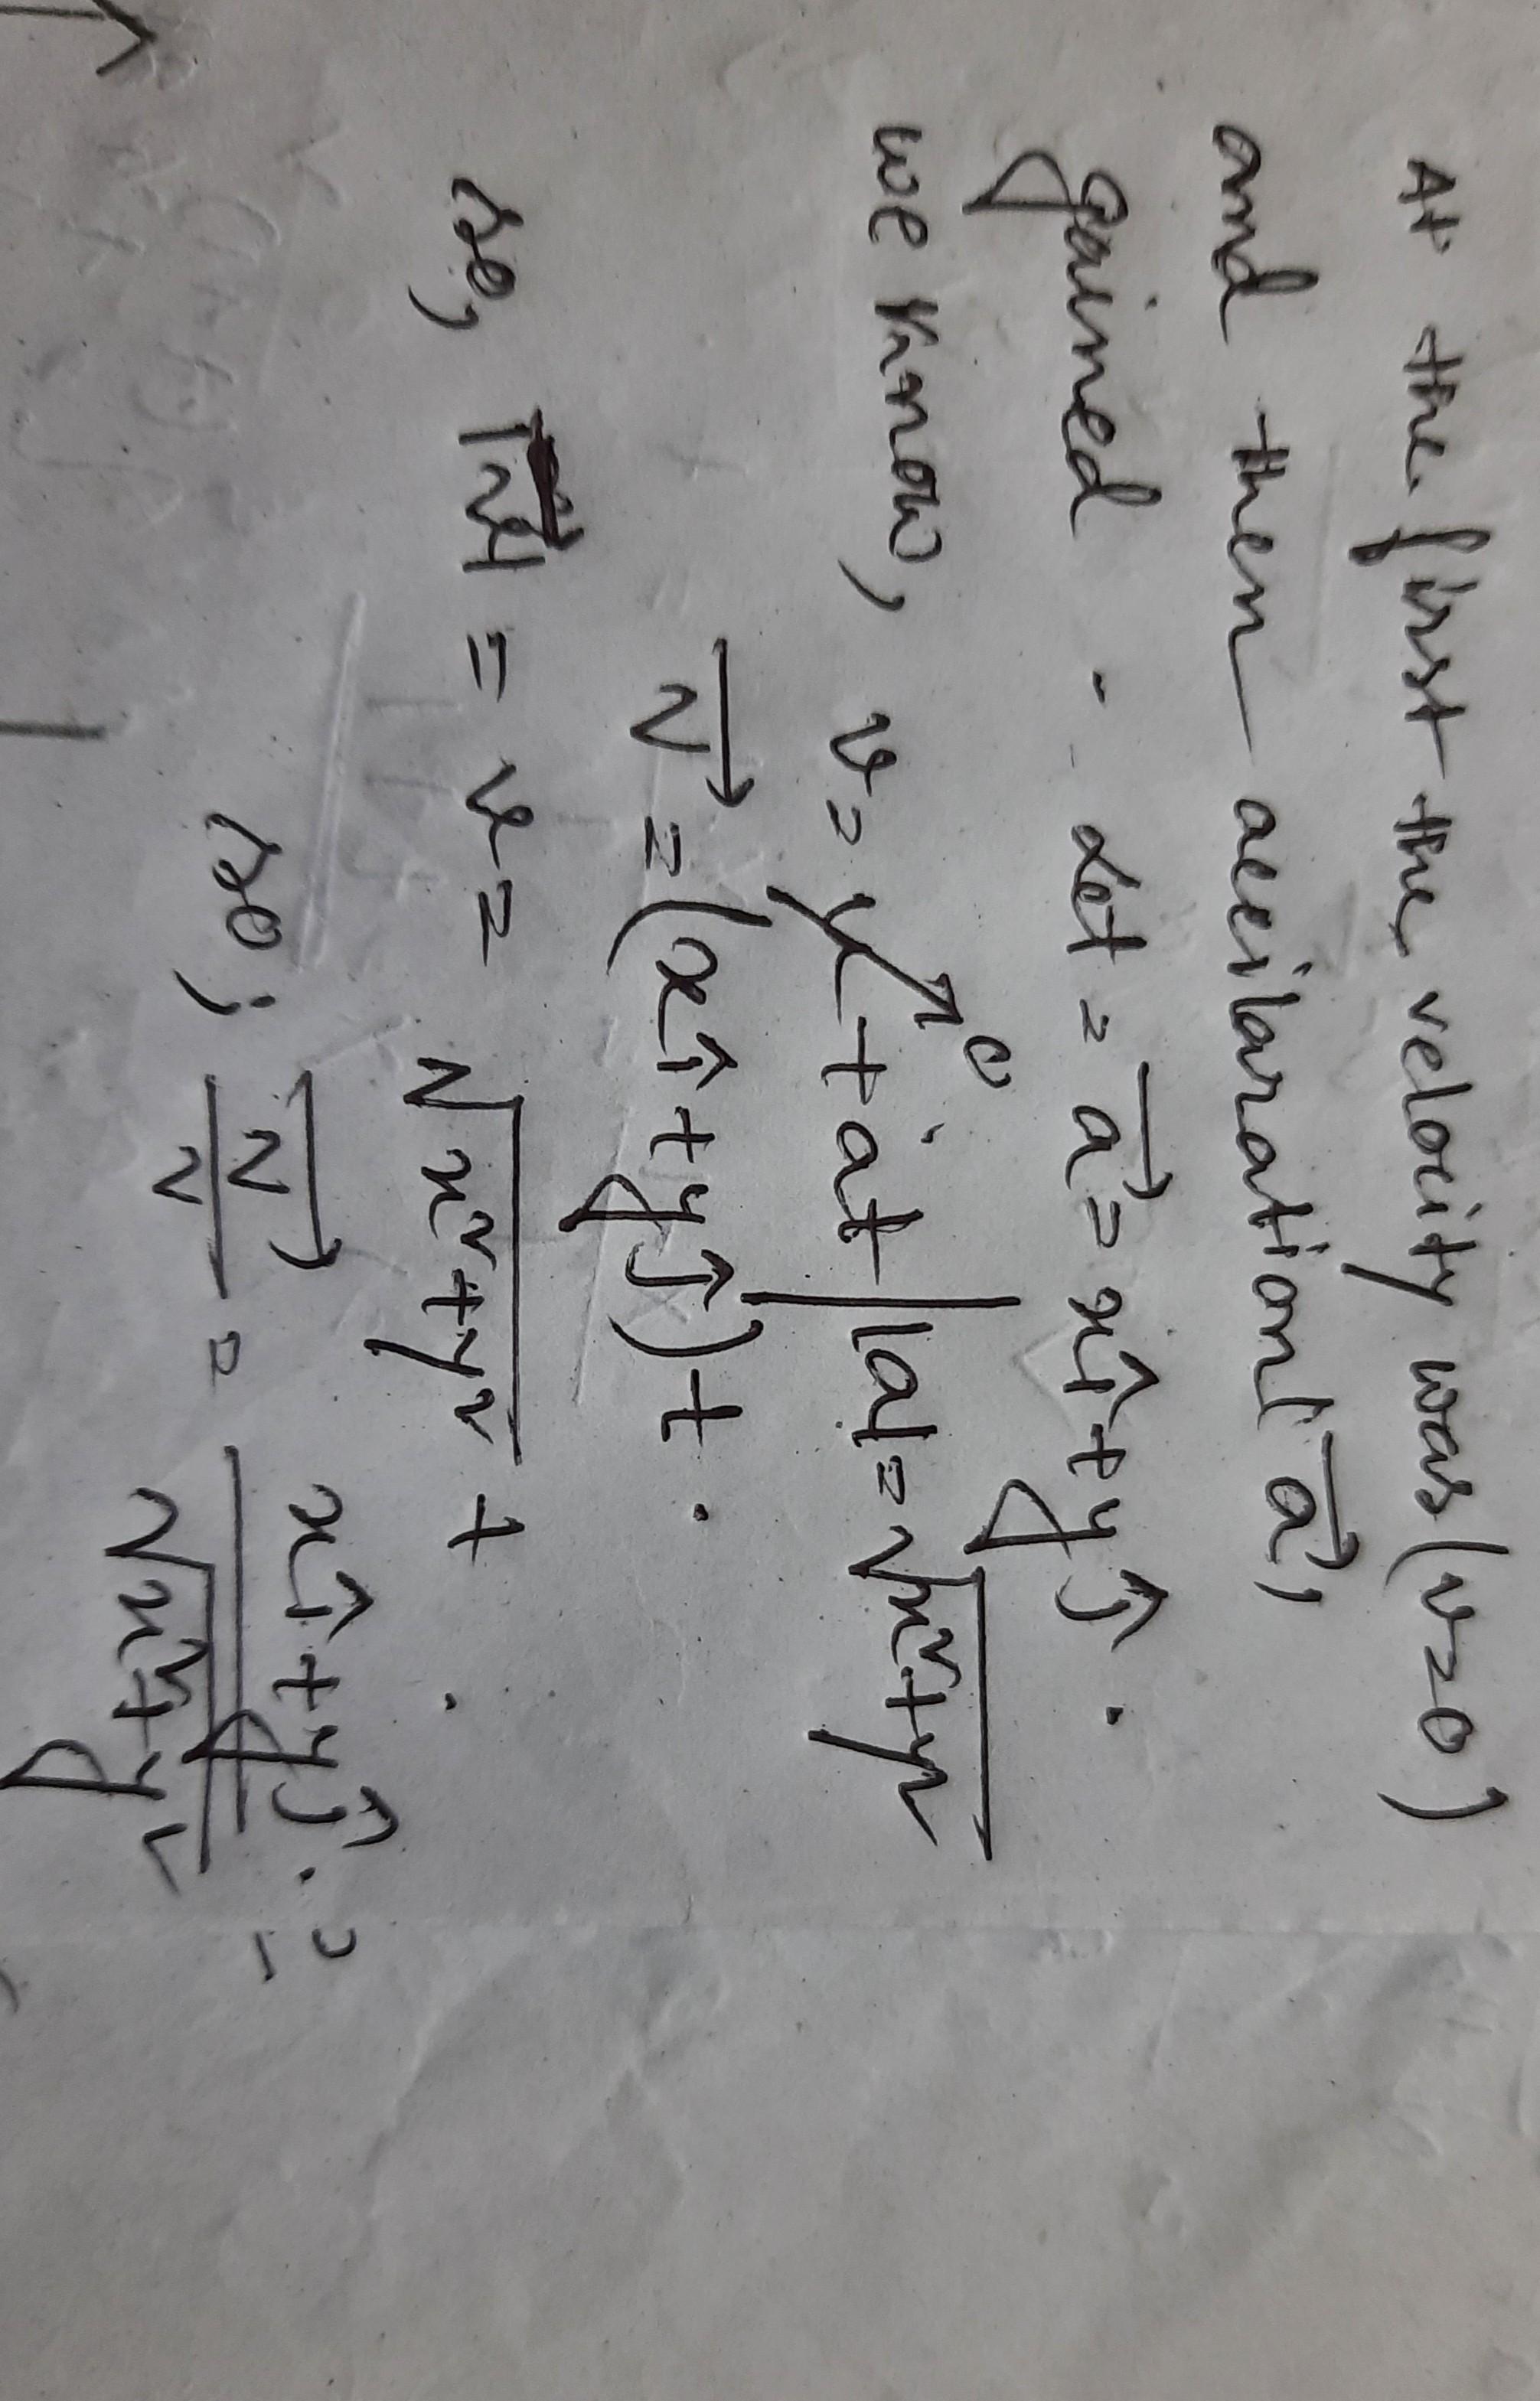 At the first the velocity was (v=0)
and then accilaration \vec{a},
gained. Let = \vec{a} = x\hat{i} + y\hat{j}.
we know, v = u↗0 + at | |a| = √(x²+y²)
\vec{v} = (x\hat{i} + y\hat{j})t.
so, = v = √(x²+y²) t.
so; \vec{v}/v = (x\hat{i} + y\hat{j})/√(x²+y²).